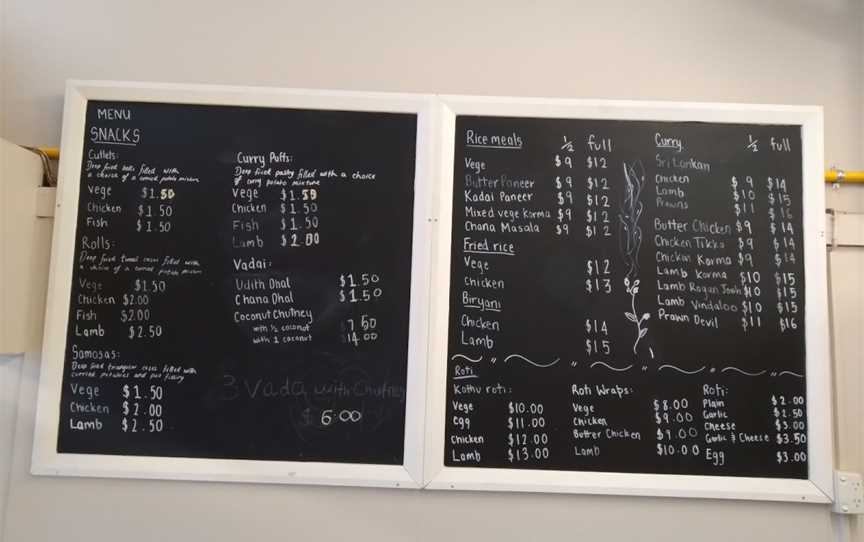 MENU
SNACKS
Cutlets:
Deep fried balls filled with
a choice of a curried potato mixture
Vege $1.50
Chicken $1.50
Fish $1.50
Rolls:
Deep fried tunnel cases filled with
a choice of a curried potato mixture
Vege $1.50
Chicken $2.00
Fish $2.00
Lamb $2.50
Samosas:
Deep fried triangular cases filled with
curried potatoes and pea filling
Vege $1.50
Chicken $2.00
Lamb $2.50
Curry Puffs:
Deep fried pastry filled with a choice
of curry potato mixture
Vege $1.50
Chicken $1.50
Fish $1.50
Lamb $2.00
Vadai:
Udith Dhal $1.50
Chana Dhal $1.50
Coconut Chutney
with ½ coconut 7.50
with 1 coconut 14.00
3 Vada with Chutney
$6.00
Rice meals ½ full
Vege $9 $12
Butter Paneer $9 $12
Kadai Paneer $9 $12
Mixed vege korma $9 $12
Chana Masala $9 $12
Fried rice
Vege $12
Chicken $13
Biryani
Chicken $14
Lamb $15
Curry ½ full
Sri Lankan
Chicken $9 $14
Lamb $10 $15
Prawns $11 $16
Butter Chicken $9 $14
Chicken Tikka $9 $14
Chicken Korma $9 $14
Lamb Korma $10 $15
Lamb Rogan Josh $10 $15
Lamb Vindaloo $10 $15
Prawn Devil $11 $16
Roti
Kothu roti:
Vege $10.00
Egg $11.00
Chicken $12.00
Lamb $13.00
Roti Wraps:
Vege $8.00
Chicken $9.00
Butter Chicken $9.00
Lamb $10.00
Roti:
Plain $2.00
Garlic $2.50
Cheese $3.00
Garlic & Cheese $3.50
Egg $3.00